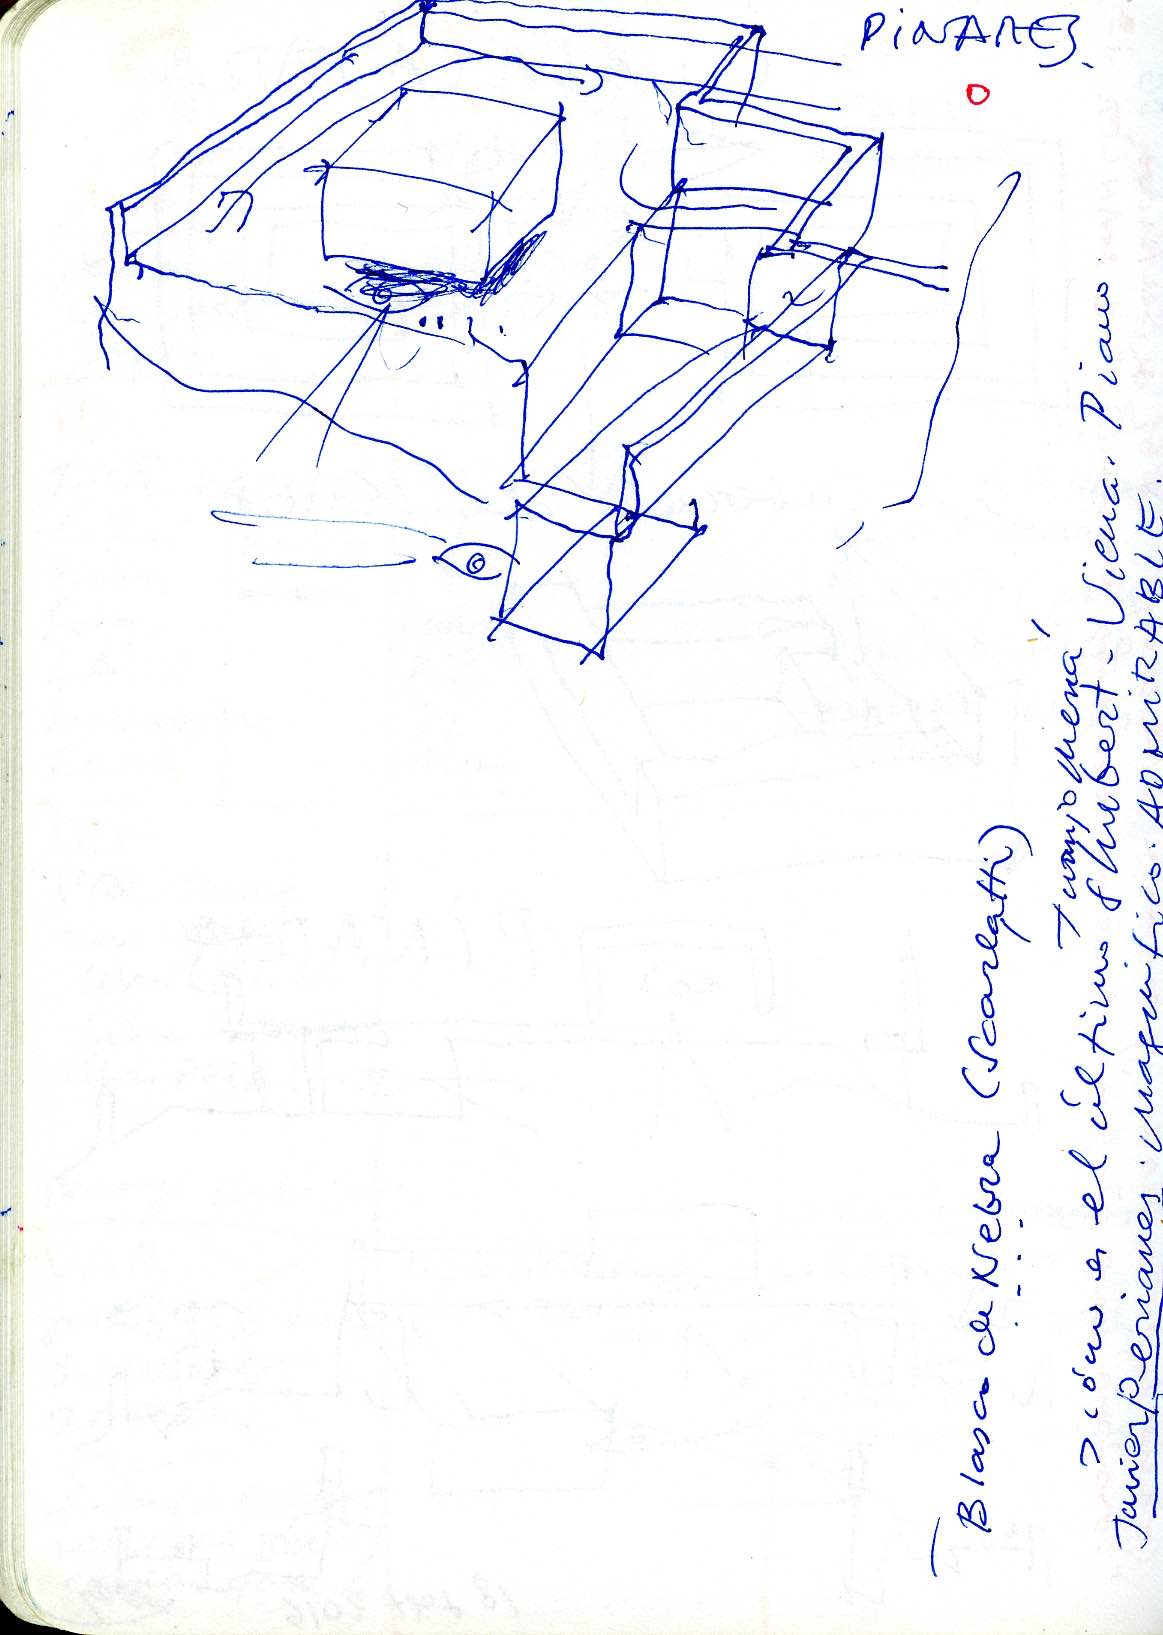 PINARES.
Blasco de Nebra (Scarlatti)
Juanjo mena
cómo es el último Shubert - Viena. Piano
Javier Perianes: magnífico. ADMIRABLE.